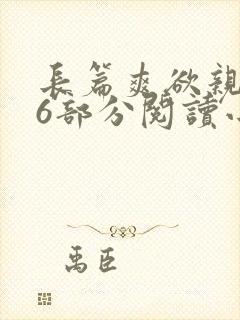 長篇爽欲親
6部分閱讀小
禹臣